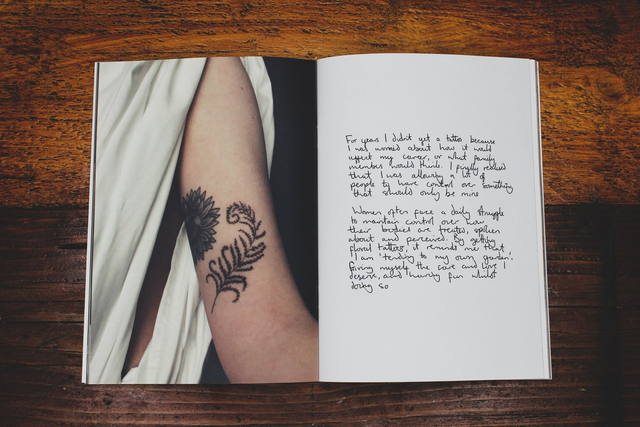 For years I didn't get a tattoo because
I was worried about how it would
affect my career, or what family
members would think. I finally realised
that I was allowing a lot of
people to have control over something
that should only be mine
Women often face a daily struggle
to maintain control over how
their bodies are treated, spoken
about and perceived. By getting
floral tattoos, it reminds me that
I am 'tending to my own garden'.
Giving myself the care and love I
deserve, and having fun whilst
doing so